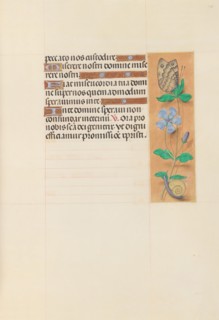 peccato nos custodire
Miserere nostri domine mise
rere nostri
Fiat misericordia tua domi
ne super nos quemadmodum
speravimus in te
In te domine speravi non
confundar in eternum ℣ Ora pro
nobis sca dei genitrix Ut digni
efficiamur promissionibus xpristi